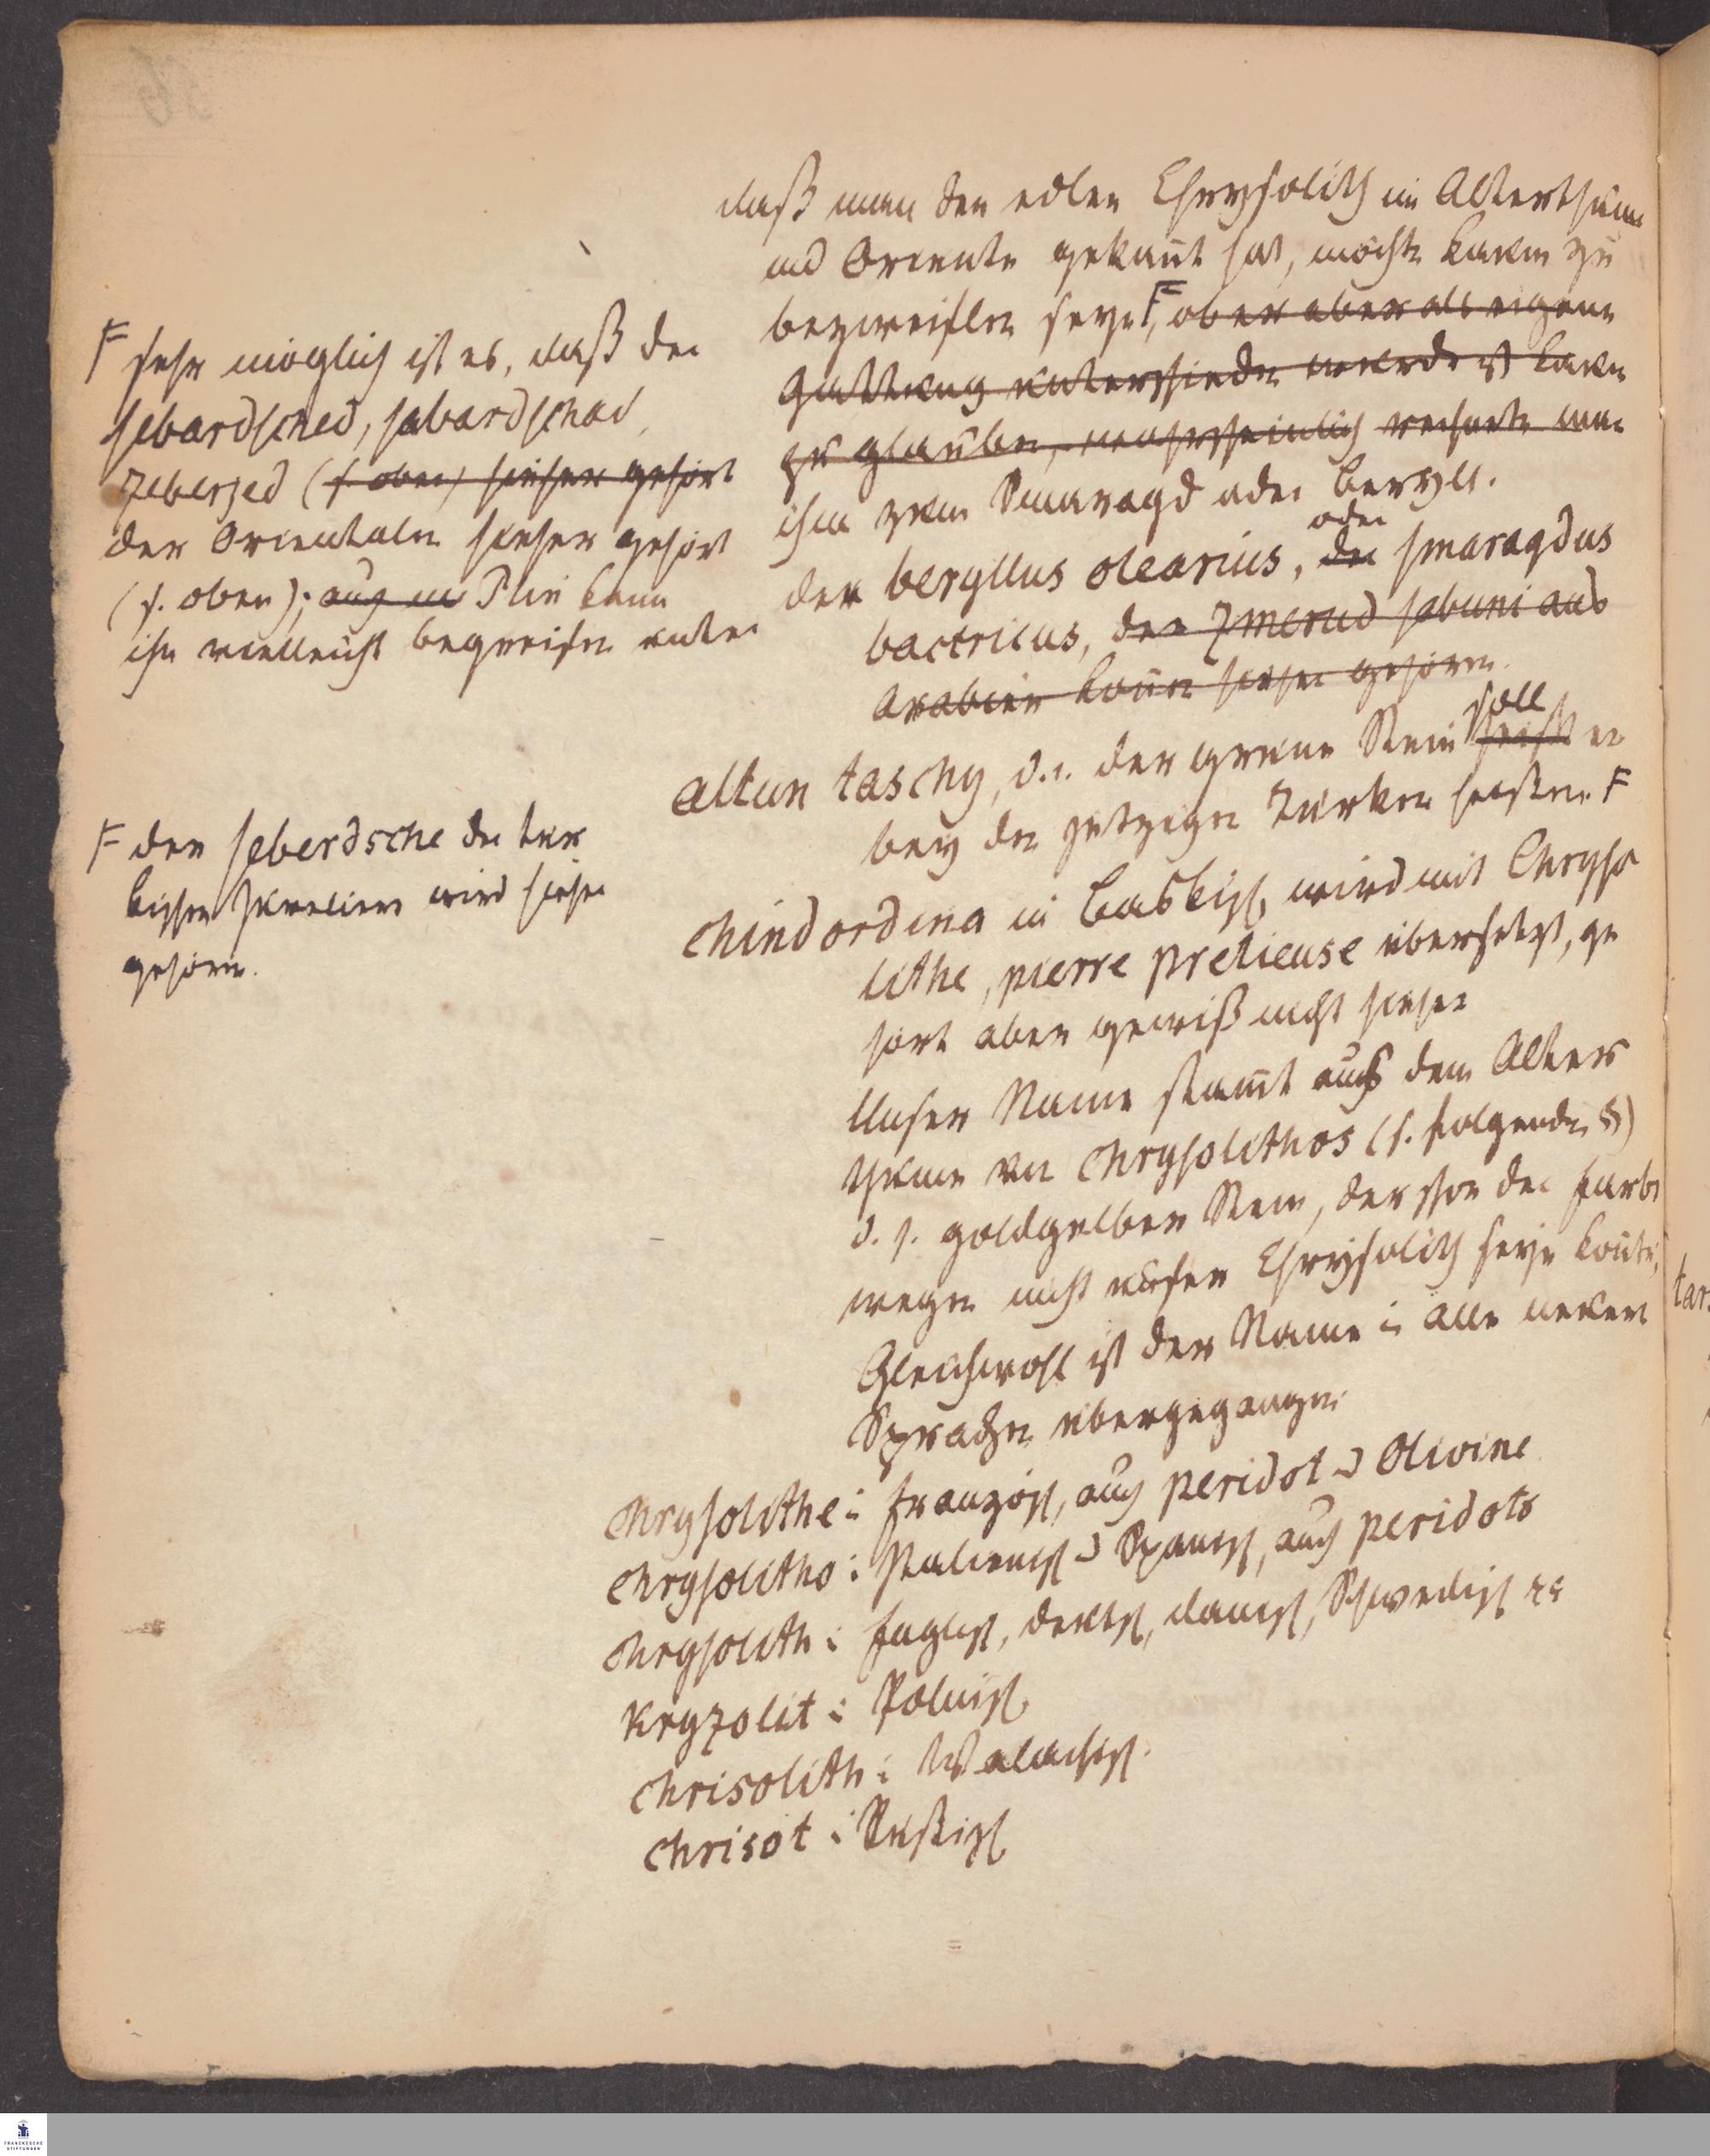 daß man den edlen Chrysolith im Alterthum
und Oriente gekan̄t hat, möchte kaum zu
bezweiflen seyn F, ober aber als eigene
Gattung unterschieden wurde ist kaum
zu glauben, warscheinlich rechnete man
ihn zum Smaragd oder Beryll.
der beryllus olearius, der oder smaragdus
bactricus, der Zmerud sabuni aus
Arabien kön̄en hieher gehören.
altun taschy, d. i. der grüne Stein soll er
bey den jetzigen Türken heißen. F
chindordina im Baskisch wird mit Chryso
lithe, pierre pretieuse übersetzt, ge
hört aber gewiß nicht hieher
Unser Name stam̄t aus dem Alter
thume von chrysolithos (s. folgenden §)
d. h. goldgelber Stein, der schon der Farbe
wegen nicht unser Chrysolith seyn kon̄te,
Gleichwohl ist der Name in alle neuern
Sprachen übergegangen
chrysolithe i Französ, auch peridot u Olivine
chrysolitho i Italienisch u Spanisch, auch peridoto
chrysolith i Englisch, deutsch, dänisch, Schwedisch ꝛc
kryzolit i Polnisch
chrisolith i Walachisch.
chrisot i Rußisch
F sehr möglich ist es, daß der
sebardsched, sabardschad,
zeberzed (s. oben) hieher gehört
der Orientalen hieher gehört
(s. oben); auch Plin kann
ihn vielleicht begreifen unter
F der seberdsche der tür
kischen Juweliere wird hieher
gehören.
FRANCKESCHE
STIFTUNGEN